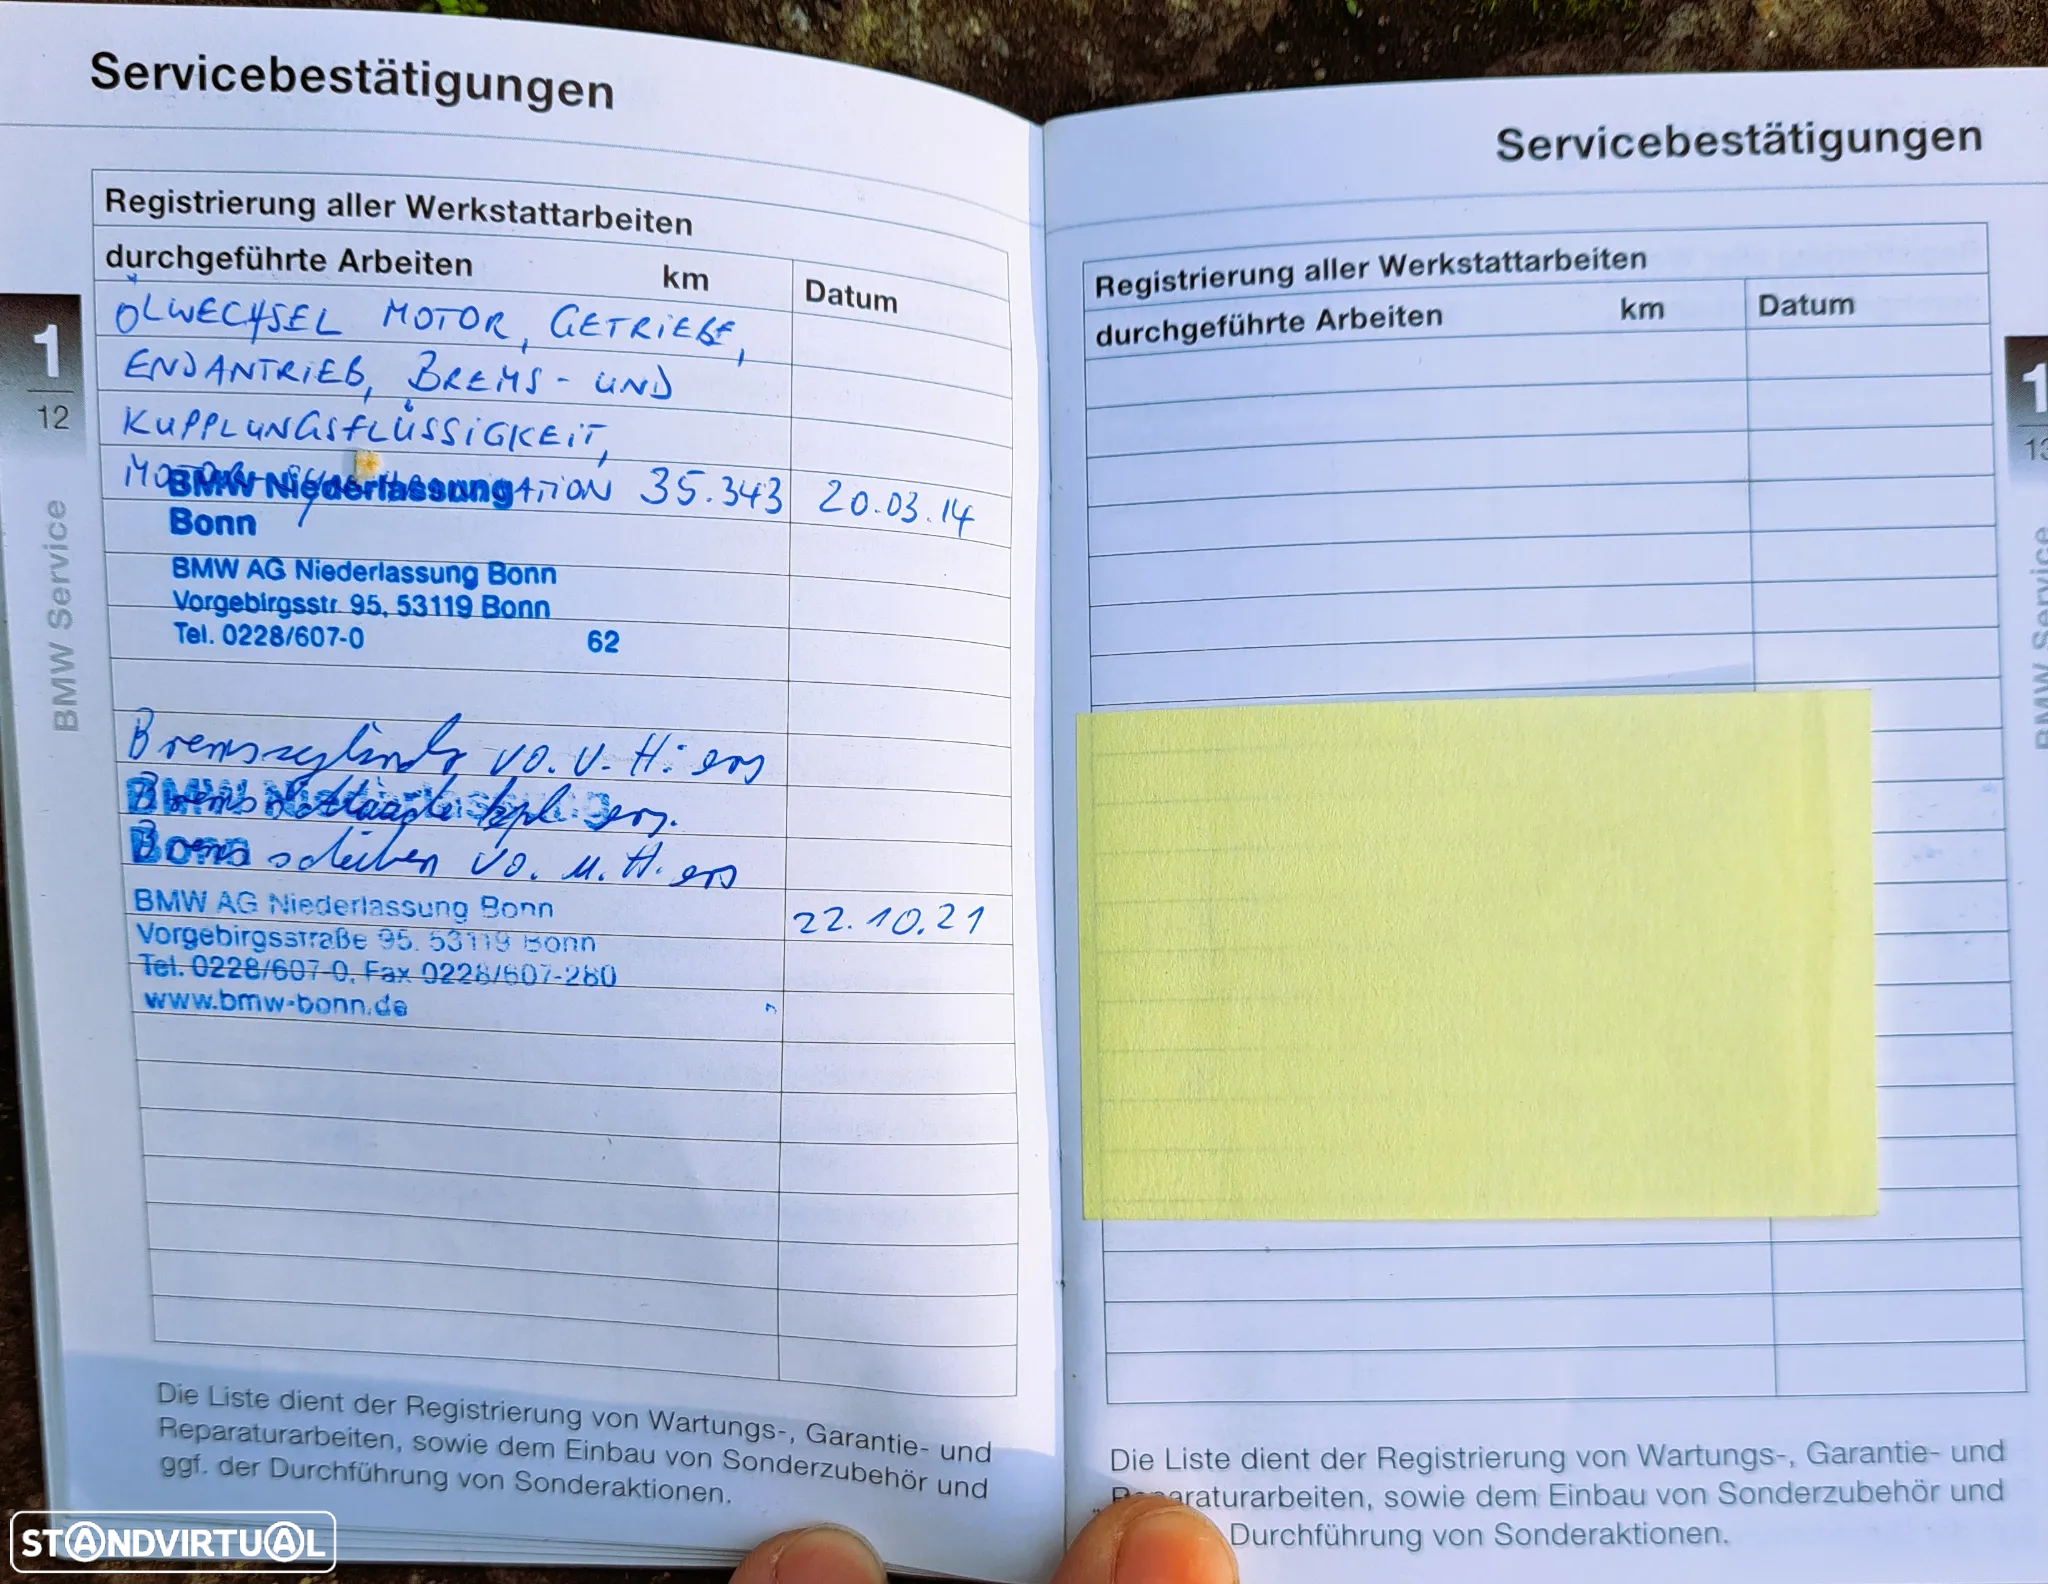 Servicebestätigungen
Registrierung aller Werkstattarbeiten
durchgeführte Arbeiten km Datum
ÖLWECHSEL MOTOR, GETRIEBE,
ENDANTRIEB, BREMS- UND
KUPPLUNGSFLÜSSIGKEIT,
35.343 20.03.14
BMW Niederlassung
Bonn
BMW AG Niederlassung Bonn
Vorgebirgsstr. 95, 53119 Bonn
Tel. 0228/607-0 62
Bremszylinder vo. u. H. ers
BMW Niederlassung
Brems kpl. ers.
Bonn
Bremsscheiben vo. u. H. ers
BMW AG Niederlassung Bonn
22.10.21
Vorgebirgsstraße 95, 53119 Bonn
Tel. 0228/607-0, Fax 0228/607-280
www.bmw-bonn.de
Die Liste dient der Registrierung von Wartungs-, Garantie- und
Reparaturarbeiten, sowie dem Einbau von Sonderzubehör und
ggf. der Durchführung von Sonderaktionen.
1
12
BMW Service
Servicebestätigungen
Registrierung aller Werkstattarbeiten
durchgeführte Arbeiten km Datum
Die Liste dient der Registrierung von Wartungs-, Garantie- und
Reparaturarbeiten, sowie dem Einbau von Sonderzubehör und
Durchführung von Sonderaktionen.
1
13
BMW Service
STANDVIRTUAL